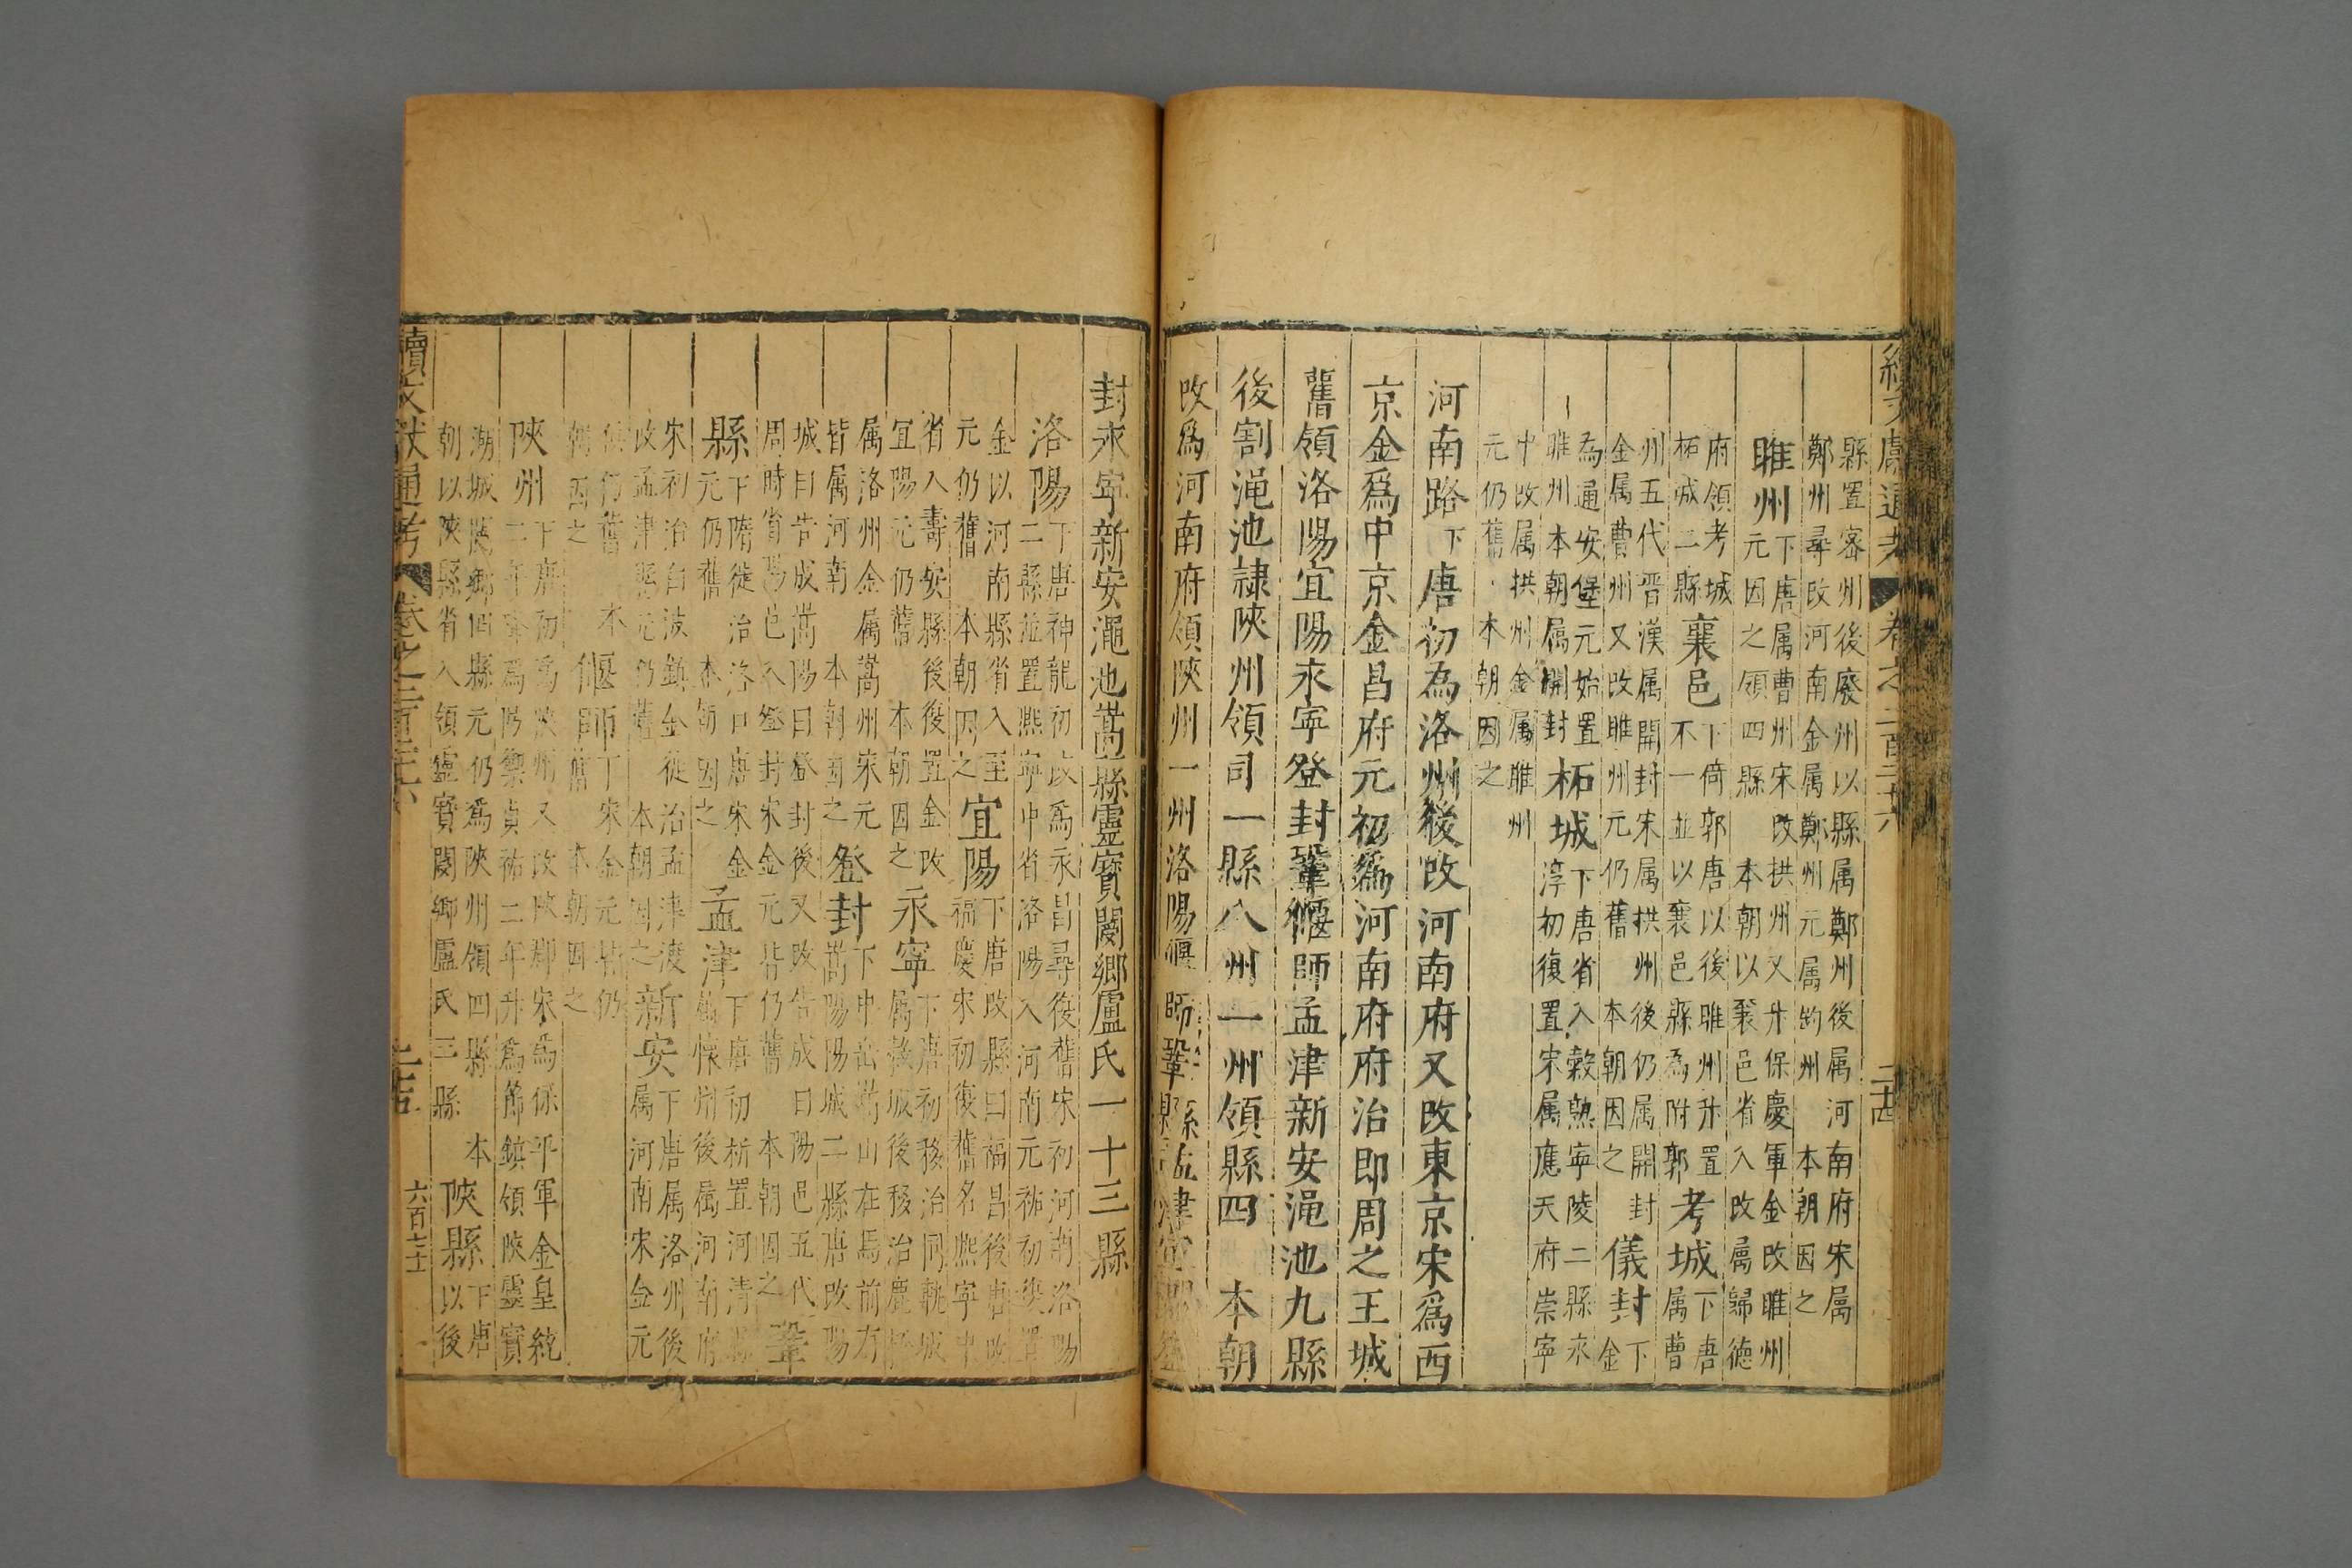 縣置密州後廢州以縣属鄭州後属河南府宋属
鄭州尋改河南金属鄭州元属鈞州 本朝因之
睢州下唐属曹州宋改拱州又升保慶軍金改睢州
元因之領四縣 本朝以襄邑省入改属歸德
府領考城
柘城二縣
襄邑下倚郭唐以後睢州升置
不一並以襄邑縣為附郭
考城下唐属曹
州五代晋漢属開封宋属拱州後仍属開封
金属曹州又改睢州元仍舊 本朝因之
儀封下金
為通安堡元始置
睢州本朝属開封
柘城下唐省入穀熟寧陵二縣永
淳初復置宋属應天府崇寧
中改属拱州金属睢州
元仍舊 本朝因之
河南路下唐初為洛州後改河南府又改東京宋爲西
京金爲中京金昌府元初爲河南府府治即周之王城
舊領洛陽宜陽永寧登封鞏偃師孟津新安澠池九縣
後割澠池隷陝州領司一縣八州一州領縣四 本朝
改爲河南府領陝州一州洛陽偃師鞏縣孟津宜陽登
封永寧新安澠池嵩縣靈寶閿鄉盧氏一十三縣
洛陽下唐神龍初改爲永昌尋復舊宋初河南洛陽
二縣並置熈寧中省洛陽入河南元祐初復置
金以河南縣省入至
元仍舊 本朝因之
宜陽下唐改縣曰福昌後唐改
福慶宋初復舊名熈寧中
省入壽安縣後復置金改
宜陽元仍舊 本朝因之
永寧下唐初移治同軌城
属穀城後移治鹿橋
属洛州金属嵩州宋元
皆属河南 本朝因之
登封下中岳嵩山在焉前有
嵩陽陽城二縣唐改陽
城曰告成嵩陽曰登封後又改告成曰陽邑五代
周時省陽邑入登封宋金元皆仍舊 本朝因之
鞏
縣下隋徙治洛口唐宋金
元仍舊 本朝因之
孟津下唐初析置河清縣
属懷州後属河南府
宋初治白波鎮金徙治孟津渡
改孟津縣元仍舊 本朝因之
新安下唐属洛州後
属河南宋金元
俱仍舊 本
朝因之
偃師下宋金元皆仍
舊 本朝因之
陝州下唐初爲陝州又改陝郡宋爲保平軍金皇統
二年降爲防禦貞祐二年升爲節鎮領陝靈寶
湖城閿鄉四縣元仍爲陝州領四縣 本
朝以陝縣省入領靈寶閿鄉盧氏三縣
陝縣下唐
以後
續文獻通考 卷之二百二十六
二十四
六百七十一